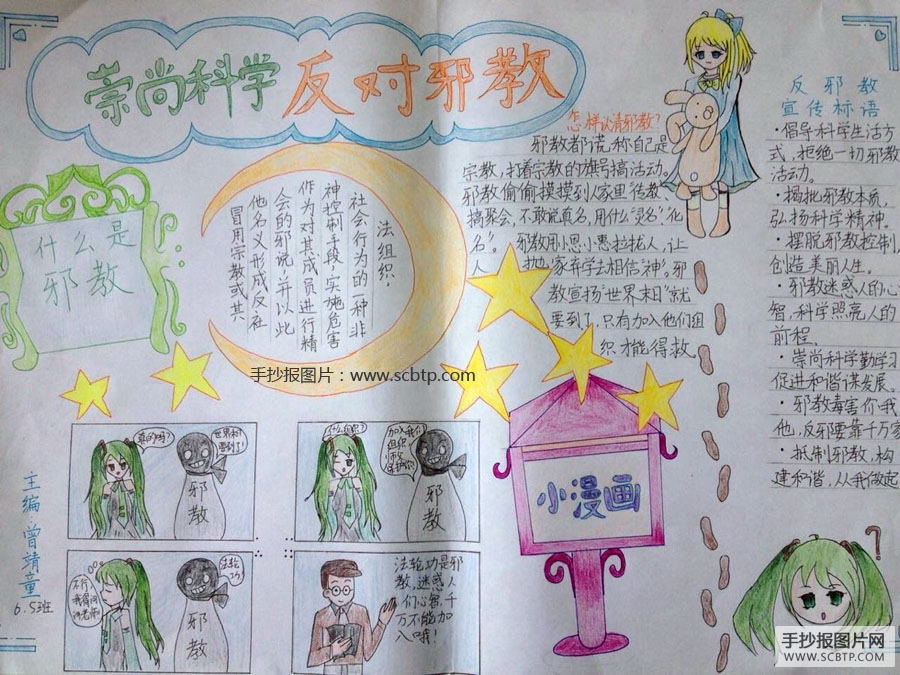 崇尚科学 反对邪教
什么是
邪教
冒用宗教或其
他名义形成反社
会的邪说,并以此
作为对其成员进行精
神控制手段,实施危害
社会行为的一种非
法组织.
怎样认清邪教?
邪教都谎称自己是
宗教,打着宗教的旗号搞活动。
邪教偷偷摸摸到人家里传教、
搞聚会,不敢说真名,用什么"灵名"、"化
名"。 邪教用小恩小惠拉拢人,让
人 家弃学去相信"神"。邪
教宣扬"世界末日"就
要到了,只有加入他们组
织才能得救。
反邪教
宣传标语
·倡导科学生活方
式,拒绝一切邪教
活动。
·揭批邪教本质,
弘扬科学精神。
·摆脱邪教控制,
创造美丽人生。
·邪教迷惑人的心
智,科学照亮人的
前程。
·崇尚科学勤学习
促进和谐谋发展。
·邪教毒害你我
他,反邪要靠千万家
·抵制邪教,构
建和谐,从我做起
手抄报图片:www.scbtp.com
小漫画
真的吗?
世界末日
要到了!
邪教
什么组织?
加入我们
组织
保护你
邪教
不行
我得问
问老师
法轮
功
邪教
法轮功是邪
教,迷惑人
们心智,千
万不能加
入哦!
主编 曾靖童
6.5班
?
手抄报图片网
WWW.SCBTP.COM